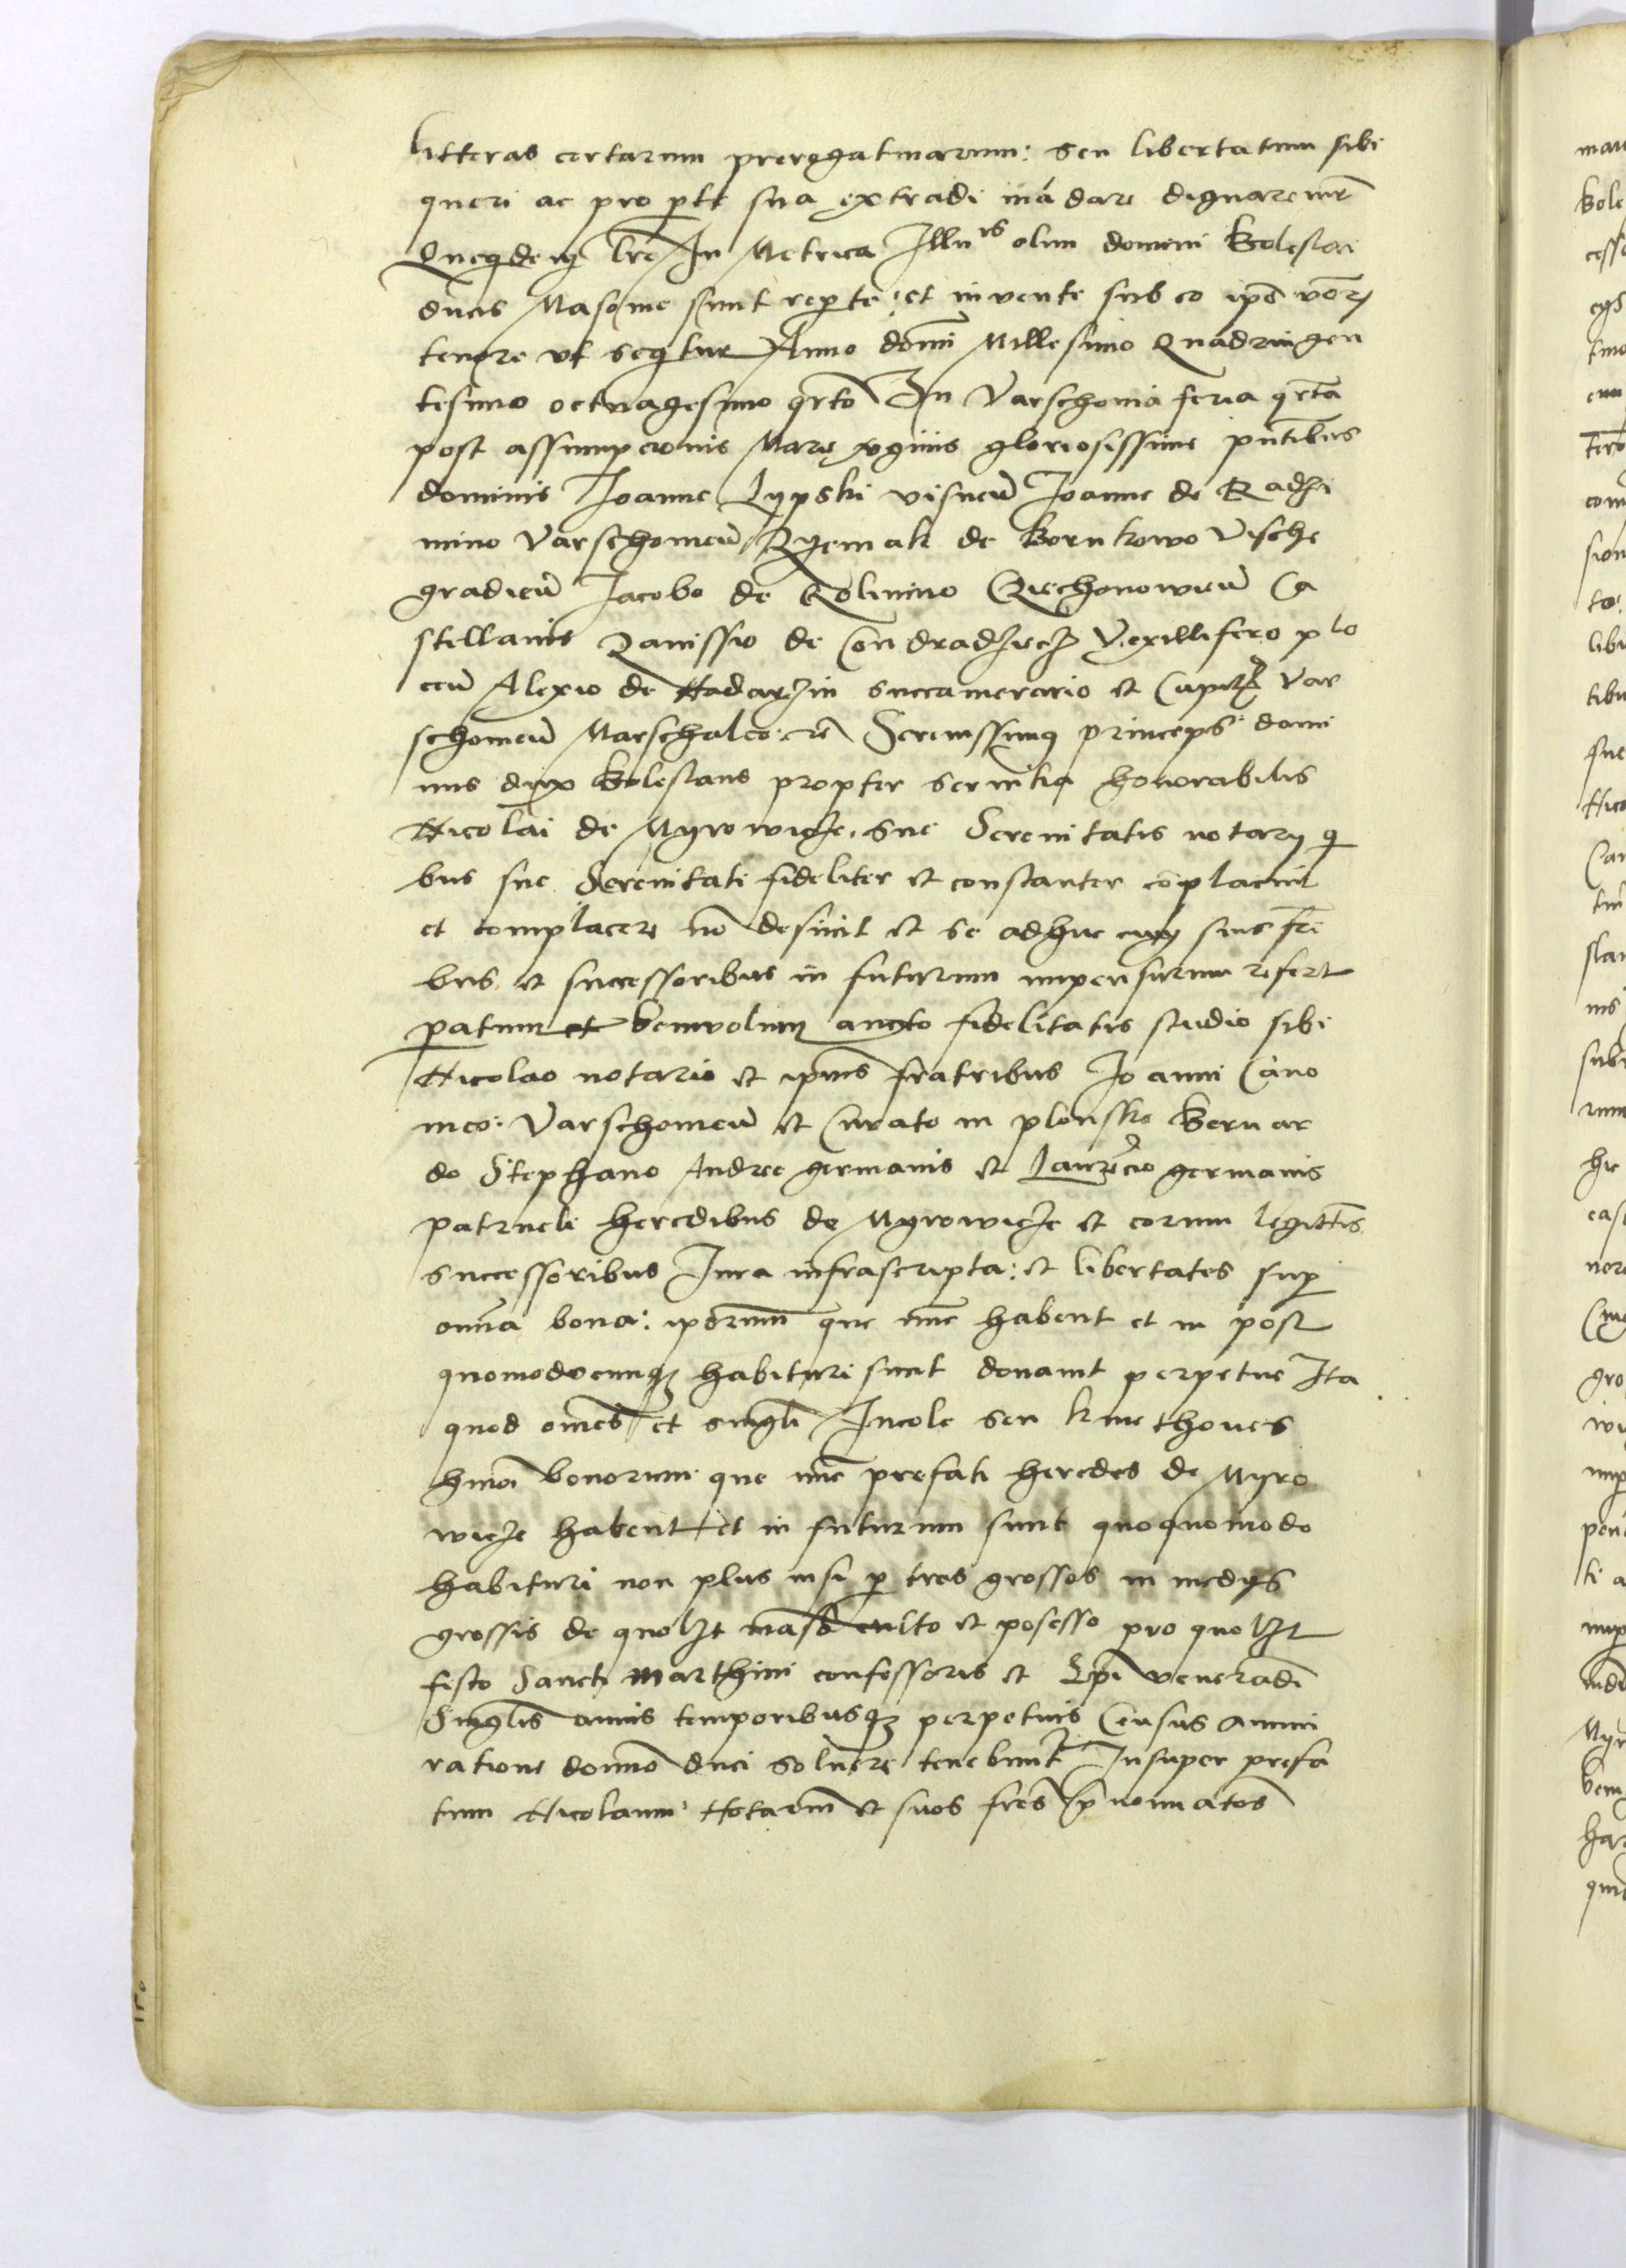 litteras certarum prerogatiuarum: seu libertatum sibi
queri ac pro pte sua extradi mādare dignaremr
Quequidem lre In Metrica Illuis olim domini Boleslai
ducis Masouie sunt reperte: et inuente sub eo ipo verborum
tenore vt sequitur Anno domi Millesimo Quadringen
tesimo octuagesimo qrto In Varschouia feria qrta
post assumpcionis Marie virginis gloriosissime pntibus
dominis Joanne Lypski visneñ Joanne de Radzi
mino Varschouieñ Zyemak de Bornkowo Vische
gradieñ Jacobo de Golimino Cziechonowieñ Ca
stellanis Zanissio de Condradziecz Vexillifero plo
ceñ Alexio de Nadarzin succamerario et Capit Var
schouieñ Marschalco: etc Serenissimus princeps domi
nus dux Boleslaus propter seruitia honorabilis
Nicolai de Myrowicze, sue Serenitatis notarij qui
bus sue Serenitati fideliter et constanter cōplacuit
et complacere nō desinit et se adhuc cum suis fri
bus et successoribus in futurum impensurum refert
paratum et beniuolum aucto fidelitatis studio sibi
Nicolao notario et ipius fratribus Joanni Cano
nico: Varschouieñ et Curato in plonsko Bernar
do Stephano Andree germanis et Laurēcio germanis
patrueli heredibus de Myrowicze et eorum legittis
successoribus Iura infrascripta: et libertates sup
omia bona: iporum que nūc habent et in post
quomodocunque habituri sunt donauit perpetue Ita
quod omes et singli Incole seu kmethones
hmoi bonorum que nūc prefati heredes de Myro
wicze habent et in futurum sunt quoquomodo
habituri non plus nisi p tres grossos in medijs
grossis de quolzt manso culto et posesso pro quolzt
festo Sancti Marthini confessoris et Epi venerādi
Singlis annis temporibusque perpetuis Census annui
ratione domio duci soluere tenebuntr Insuper prefa
tum Nicolaum Notarium et suos fres prenominatos